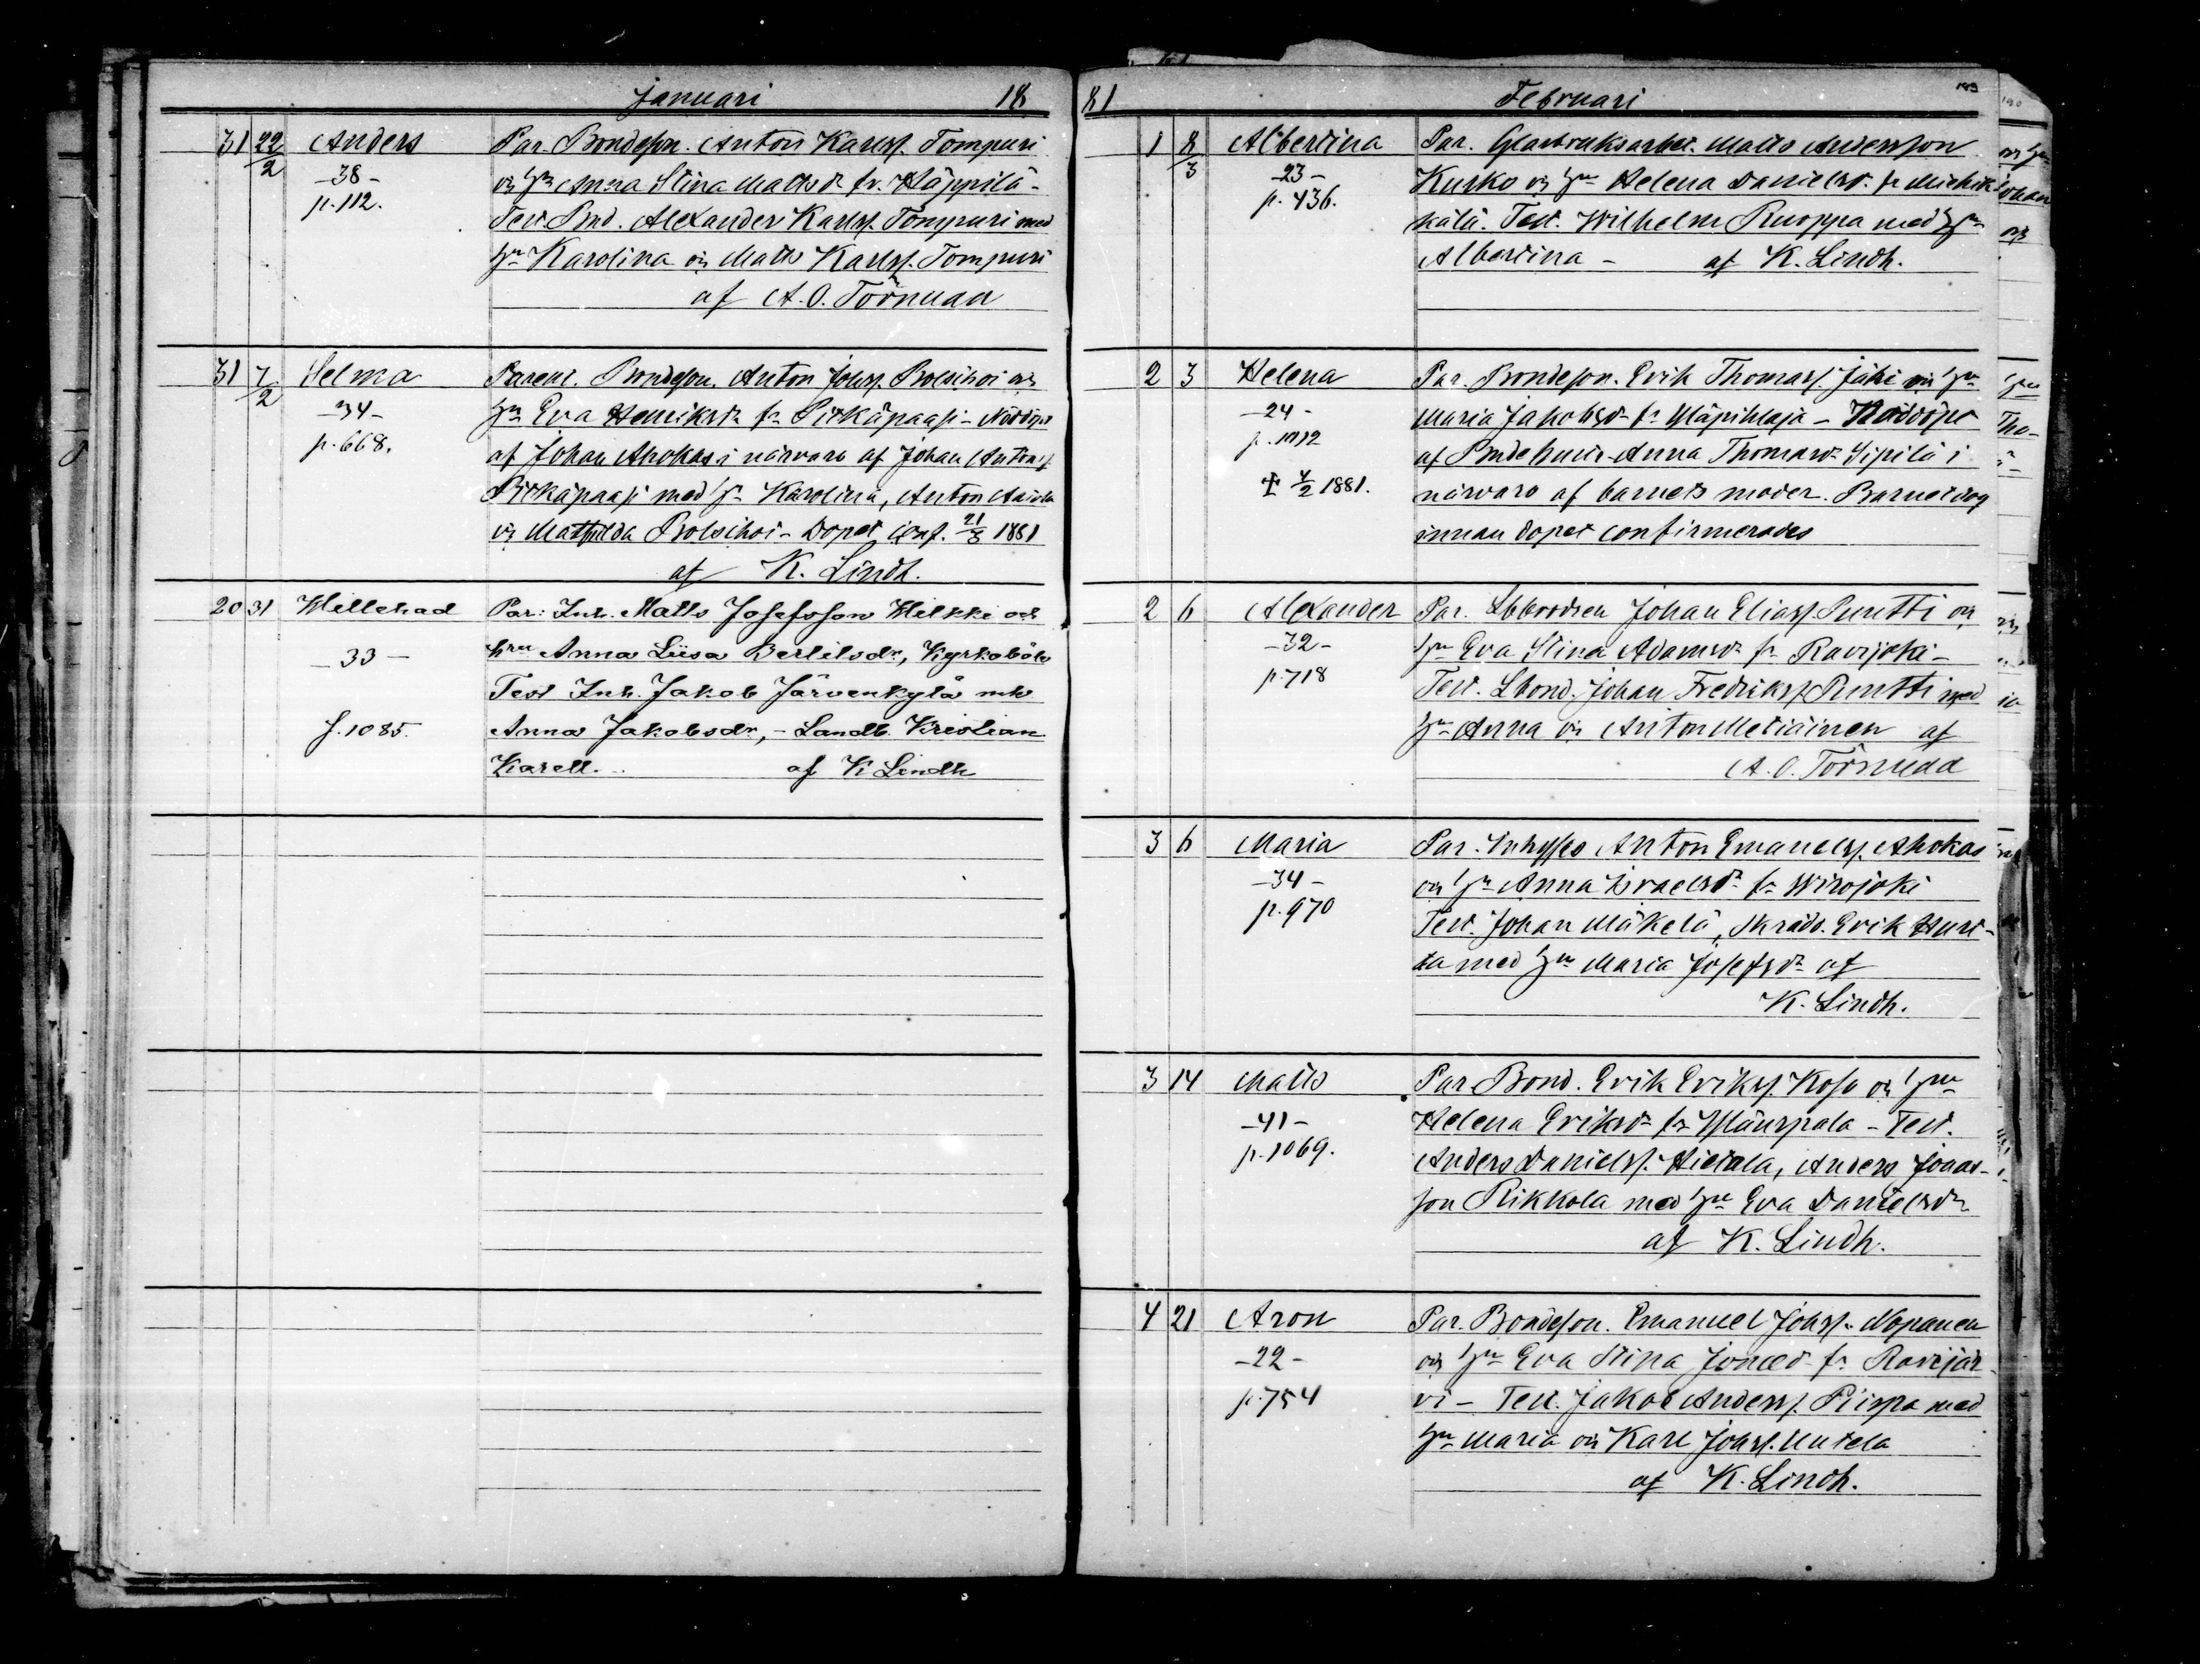 Januari 18
31 22/2 Anders Par. Bondeson. Anton Karlss. Tompuri
-38- och hu Anna Stina Mattsdr fr. Häppilä-
p. 112. Test. Bond. Alexander Karlss. Tompuri med
hu Karolina och Matts Karlss. Tompuri
af A. O. Törnudd
31 7/2 Helma Parent. Bondeson. Anton Johss. Polsihoi och
-34- hu Eva Henriksdr fr Pitkäpaasi - Nöddöpt
p. 668. af Johan Ahokas i närvaro af Johan Antonss.
Pitkäpaasi med hu Karolina, Anton
och Mathilda Polsihoi - Dopet conf. 21/3 1881
af K. Lindh.
20 31 Willehad Par: Inh. Matts Josefsson Hilkki och
-33- hru Anna Liisa Bertilsdr, Kyrkoböle
Test Inh. Jakob Järvenkylä mh
f. 1085. Anna Jakobsdr, - Landb. Kristian
Karell. af K Lindh
81 Februari 189
1 8/3 Albertina Par. Glasbruksarbet. Matts Andersson
-23- Kurko och hu Helena Danielsdr. fr Miehik
p. 436. kälä. Test. Wilhelm Ruoppa med hu
Albertina - af K. Lindh.
2 3 Helena Par. Bondeson. Erik Thomass. Jäki och hu
-24- Maria Jakobsdr fr Yläpihlaja - Nöddöpt
p. 1012 af Bondehustr. Anna Thomasdr Sipilä i
‡ 4/2 1881. närvaro af barnets moder. Barnet dog
innan dopet confirmerades
2 6 Alexander Par. Johan Eliass. Puntti och
-32- hu Eva Stina Adamsdr fr Ravijoki -
p. 718 Test. Lbond. Johan Fredrikss. Puntti med
hu Anna och Anton Metiäinen af
A. O. Törnudd
3 6 Maria Par. Inhyses Anton Emanuelss. Ahokas
-34- och hu Anna Israelsdr fr Wirojoki
p. 970 Test. Johan Mäkelä, Skrädd. Erik Hurt-
ta med hu Maria Josefsdr af
K. Lindh.
3 14 Matts Par Bond. Erik Erikss. Koso och hu
-41- Helena Eriksdr fr Yläurpala - Test.
p. 1069. Anders Danielss. Hietala, Anders Jonas-
son Rikkola med hu Eva Danielsdr
af K. Lindh.
4 21 Aron Par. Bondeson. Emanuel Johss. Nopanen
-22- och hu Eva Stina Jonasdr fr Ravijär
p. 754 vi - Test. Jakob Anderss. Piispa med
hu Maria och Karl Johss. Uutela
af K. Lindh.